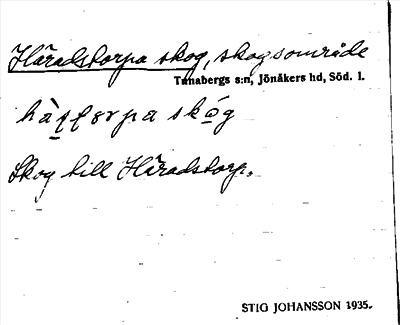 Häradstorpa skog, skogsområde
Tunabergs s:n, Jönåkers hd, Söd. l.
skóg
Skog till Häradstorp.
STIG JOHANSSON 1935.